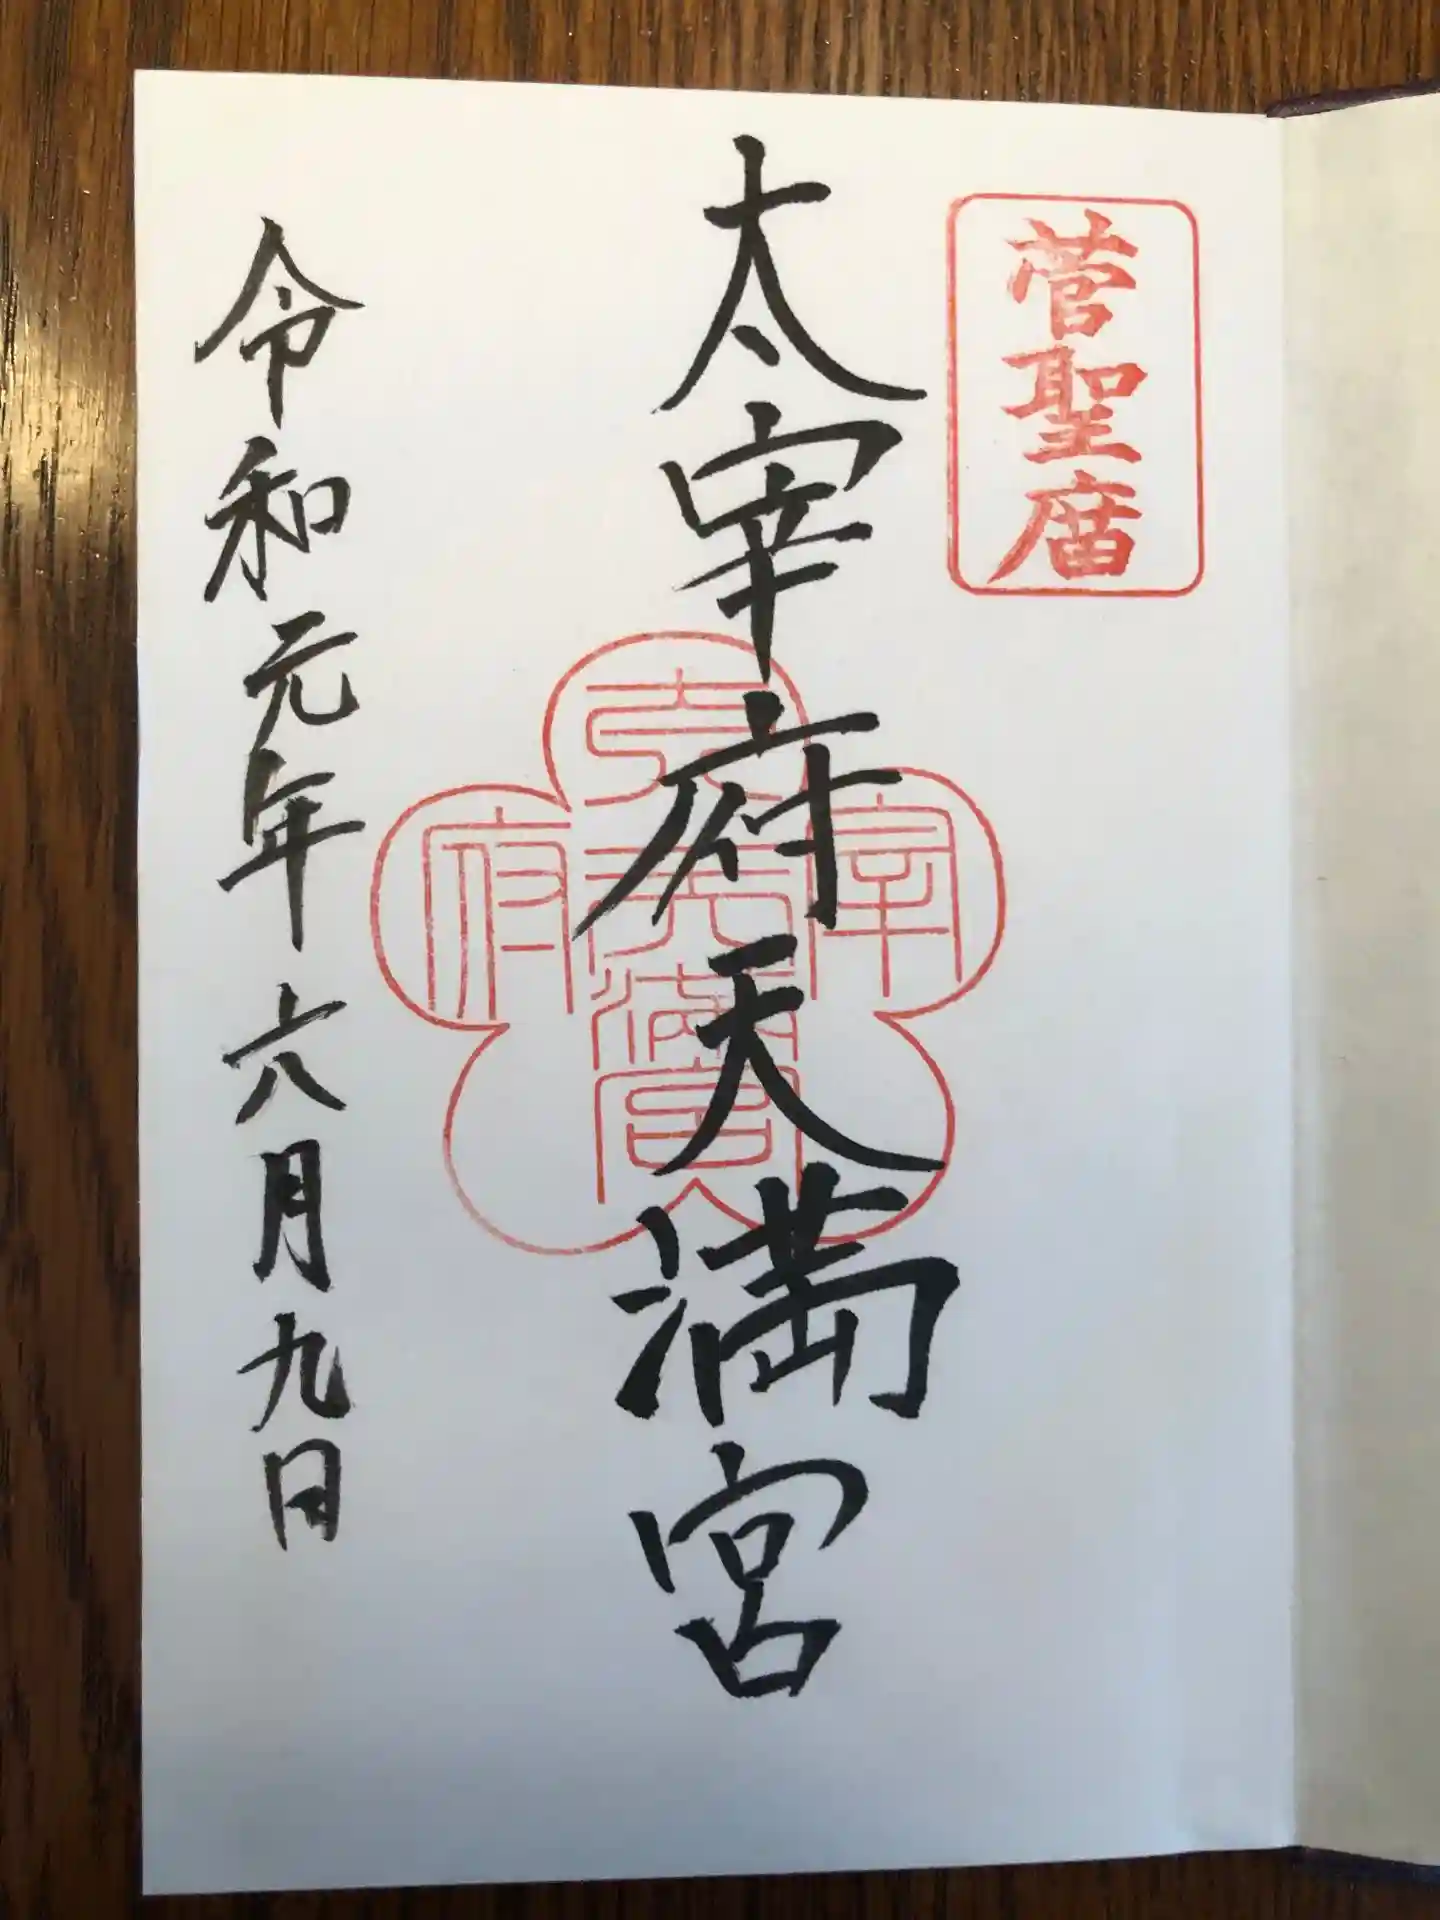 菅聖庿
太宰府天満宮
太
宰
府
天
満
宮
令和元年六月九日